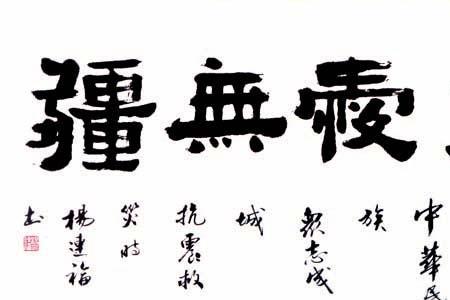 愛無疆
中華民
族
眾志成
城
抗震救
災時
楊連福
書